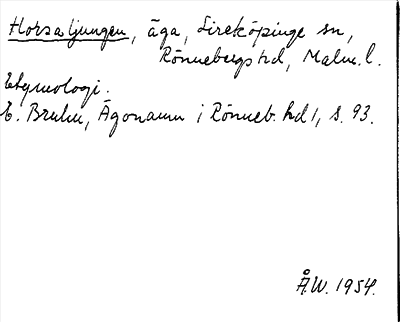 Horsaljungen, äga, Sireköpinge sn,
Rönnebergs hd, Malm. l.
Etymologi.
E. Bruhn, Ägonamn i Rönneb. hd 1, s. 93.
Å.W. 1954.